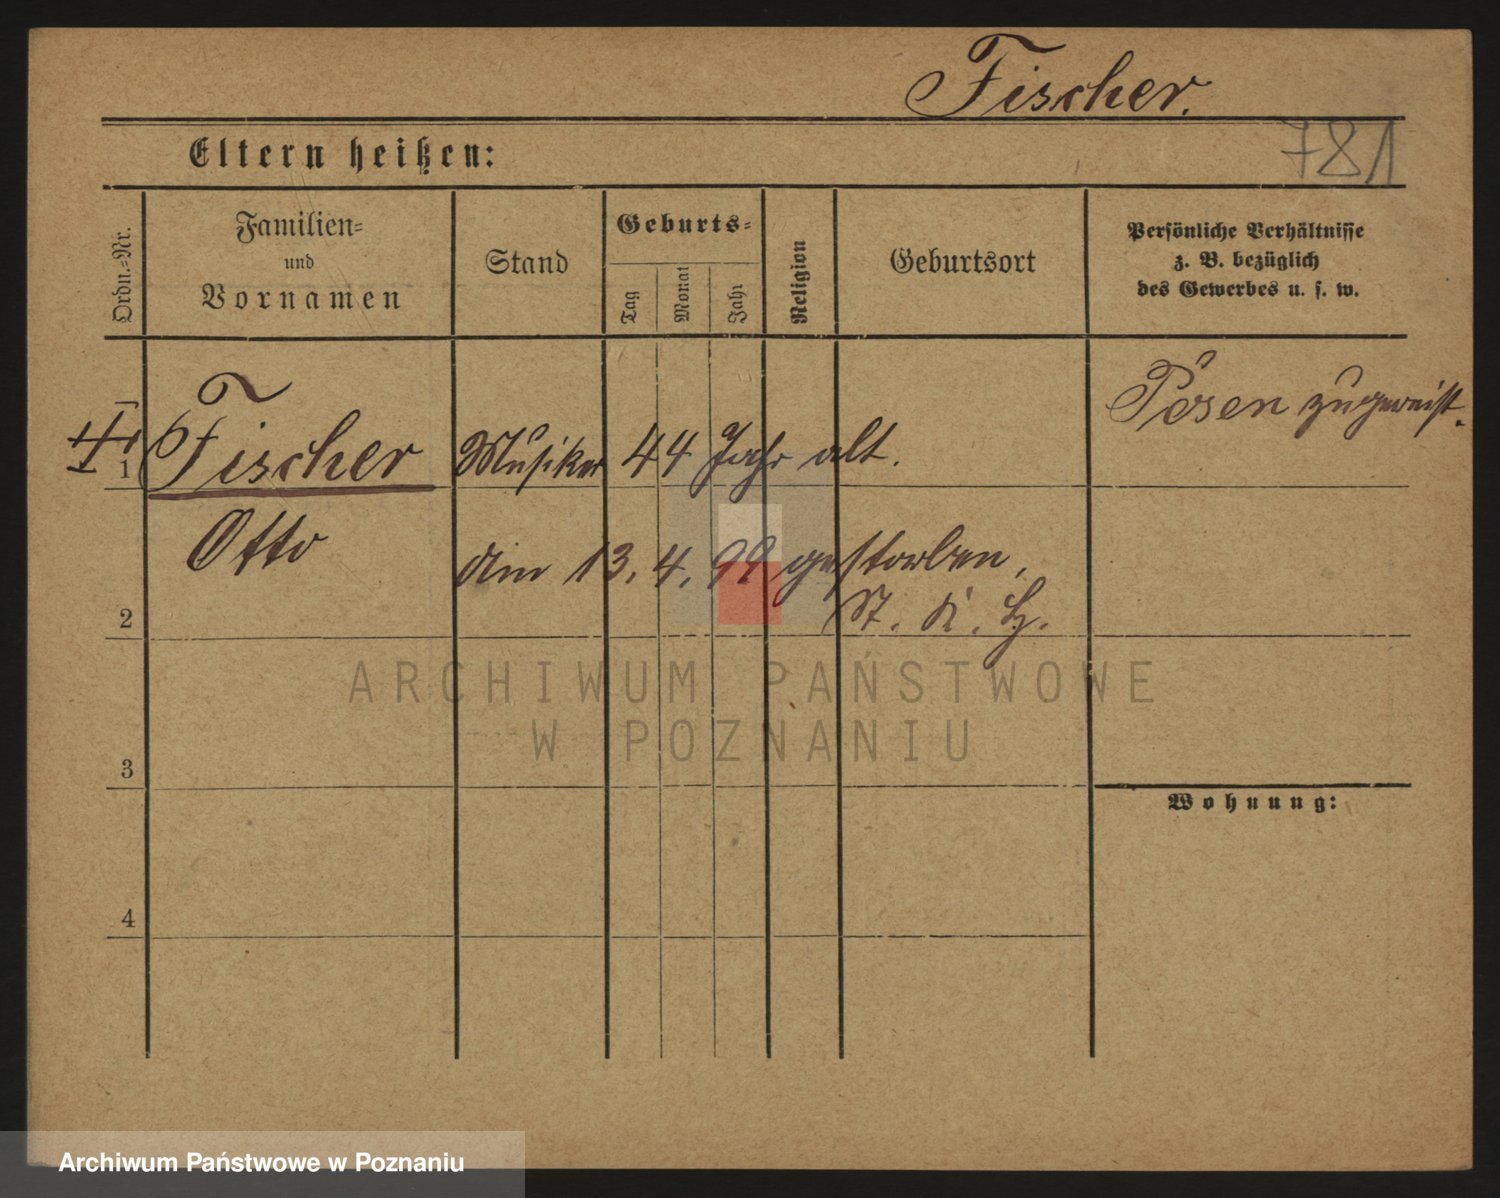 Fischer.
781
Eltern heißen:
Ordn.-Nr.
Familien-
und
Vornamen
Stand
Geburts-
Tag
Monat
Jahr
Religion
Geburtsort
Persönliche Verhältnisse
z. B. bezüglich
des Gewerbes u. s. w.
Posen zugereist.
1 Fischer Musiker 44 Jahr alt.
Otto
am 13. 4. 99 gestorben,
2 St. K. H.
ARCHIWUM PAŃSTWOWE
W POZNANIU
3
Wohnung:
4
Archiwum Państwowe w Poznaniu